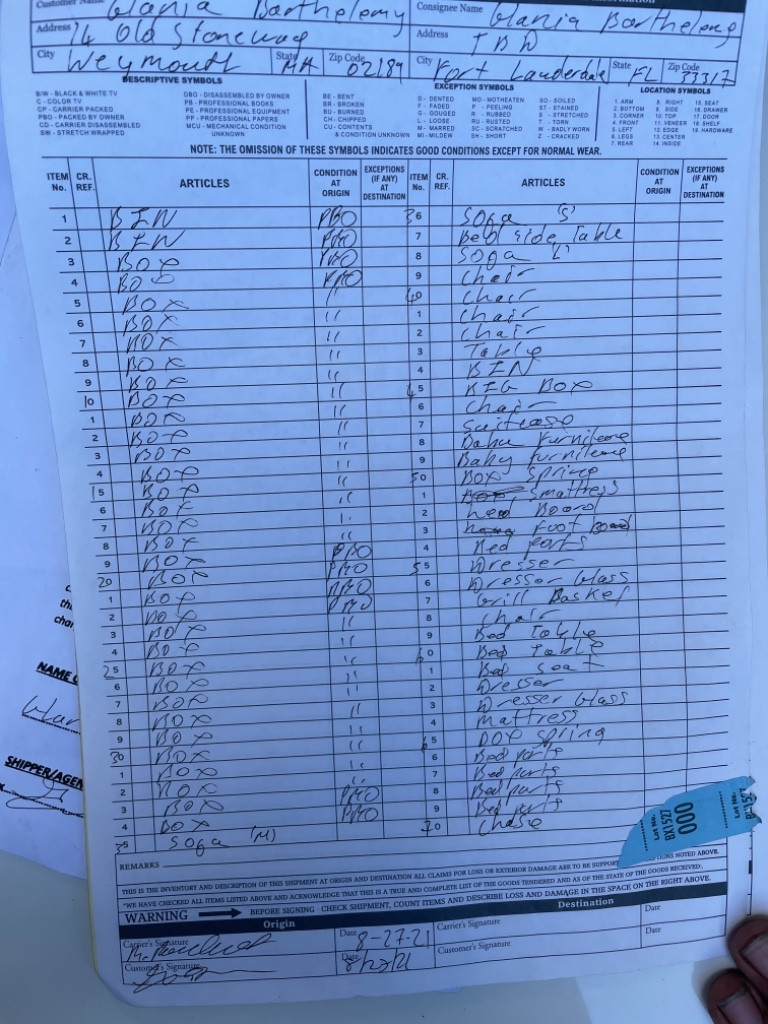 Customer Name Glania Barthelemy Consignee Name Glania Barthelemy
Address 14 Old Stoneway Address TBD
City Weymouth State MA Zip Code 02189 City Fort Lauderdale State FL Zip Code 33317
DESCRIPTIVE SYMBOLS EXCEPTION SYMBOLS LOCATION SYMBOLS
B/W - BLACK & WHITE TV DBO - DISASSEMBLED BY OWNER BE - BENT D - DENTED MO - MOTHEATEN SO - SOILED 1. ARM 8. RIGHT 15. SEAT
C - COLOR TV PB - PROFESSIONAL BOOKS BR - BROKEN F - FADED P - PEELING ST - STAINED 2. BOTTOM 9. SIDE 16. DRAWER
CP - CARRIER PACKED PE - PROFESSIONAL EQUIPMENT BU - BURNED G - GOUGED R - RUBBED S - STRETCHED 3. CORNER 10. TOP 17. DOOR
PBO - PACKED BY OWNER PP - PROFESSIONAL PAPERS CH - CHIPPED L - LOOSE RU - RUSTED T - TORN 4. FRONT 11. VENEER 18. SHELF
CD - CARRIER DISASSEMBLED MCU - MECHANICAL CONDITION CU - CONTENTS M - MARRED SC - SCRATCHED W - BADLY WORN 5. LEFT 12. EDGE 19. HARDWARE
SW - STRETCH WRAPPED UNKNOWN & CONDITION UNKNOWN MI - MILDEW SH - SHORT Z - CRACKED 6. LEGS 13. CENTER
7. REAR 14. INSIDE
NOTE: THE OMISSION OF THESE SYMBOLS INDICATES GOOD CONDITIONS EXCEPT FOR NORMAL WEAR.
ITEM No. CR. REF. ARTICLES CONDITION AT ORIGIN EXCEPTIONS (IF ANY) AT DESTINATION ITEM No. CR. REF. ARTICLES CONDITION AT ORIGIN EXCEPTIONS (IF ANY) AT DESTINATION
1 BIN PBO 36 Soga (S)
2 BIN PBO 7 Bed side Table
3 BOX PBO 8 Soga L
4 BOX PBO 9 Chair
5 BOX " 40 Chair
6 BOX " 1 Chair
7 BOX " 2 Chair
8 BOX " 3 Table
9 BOX " 4 BIN
10 BOX " 45 BIG BOX
1 BOX " 6 Chair
2 BOX " 7 Suitcase
3 BOX " 8 Baby Furniture
4 BOX " 9 Baby furniture
15 BOX " 50 BOX Spring
6 BOX " 1 Smattress
7 BOX " 2 head Board
8 BOX " 3 Foot Board
9 BOX PBO 4 Bed parts
20 BOX PBO 55 Dresser
1 BOX PBO 6 Dresser Glass
2 BOX PBO 7 Grill Basket
3 BOX " 8 Chair
4 BOX " 9 Bed Table
25 BOX " 60 Bed Table
6 BOX " 1 Bed Seat
7 BOX 2 Dresser
8 BOX " 3 Dresser Glass
9 BOX " 4 Mattress
30 BOX " 65 BOX Spring
1 BOX " 6 Bed parts
2 BOX " 7 Bed parts
3 BOX PBO 8 Bed parts
4 BOX PBO 9 Bed parts
35 Soga (M) 70 Chase
000
BX1527
LOT No.
REMARKS
THIS IS THE INVENTORY AND DESCRIPTION OF THIS SHIPMENT AT ORIGIN AND DESTINATION ALL CLAIMS FOR LOSS OR EXTERIOR DAMAGE ARE TO BE SUPPORT IONS NOTED ABOVE.
"WE HAVE CHECKED ALL ITEMS LISTED ABOVE AND ACKNOWLEDGE THAT THIS IS A TRUE AND COMPLETE LIST OF THE GOODS TENDERED AND OF THE STATE OF THE GOODS RECEIVED.
WARNING BEFORE SIGNING - CHECK SHIPMENT, COUNT ITEMS AND DESCRIBE LOSS AND DAMAGE IN THE SPACE ON THE RIGHT ABOVE.
Origin Destination
Carrier's Signature Date 8-27-21 Carrier's Signature Date
Customer's Signature Date 8/27/21 Customer's Signature Date
NAME
SHIPPER/AGEN